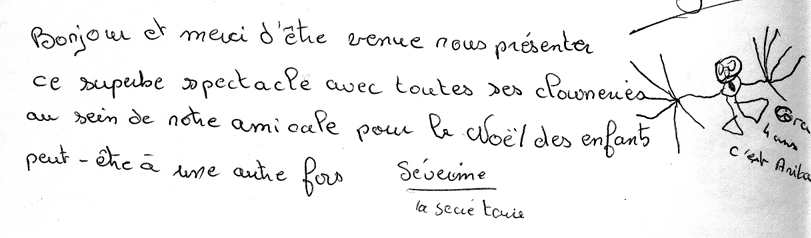 Bonjour et merci d'être venue nous présenter
ce superbe spectacle avec toutes ses clowneries
au sein de notre amicale pour le Noël des enfants
peut-être à une autre fois
Séverine
la secrétaire
4 ans
c'est Anita